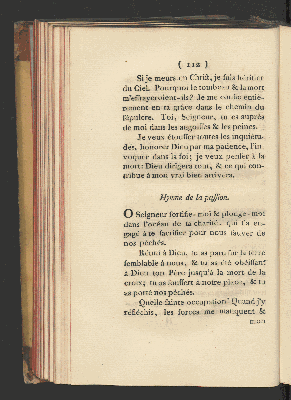 ( 112 )
Si je meurs en Christ, je suis héritier
du Ciel. Pourquoi le tombeau & la mort
m'effrayeroient-ils? Je me confie entié-
rement en ta grâce dans le chemin du
sépulcre. Toi, Seigneur, tu es auprès
de moi dans les angoisses & les peines.
Je veux étouffer toutes les inquiétu-
des, honorer Dieu par ma patience, l'in-
voquer dans la foi; je veux penser à la
mort: Dieu dirigera tout, & ce qui con-
tribue à mon vrai bien arrivera.
Hymne de la passion.
O Seigneur fortifie-moi & plonge-moi
dans l'océan de ta charité, qui t'a en-
gagé à te sacrifier pour nous sauver de
nos péchés.
Réuni à Dieu, tu as paru sur la terre
semblable à nous, & tu as été obéissant
à Dieu ton Père jusqu'à la mort de la
croix; tu as souffert à notre place, & tu
as porté nos péchés.
Quelle sainte occupation! Quand j'y
réfléchis, les forces me manquent &
mon